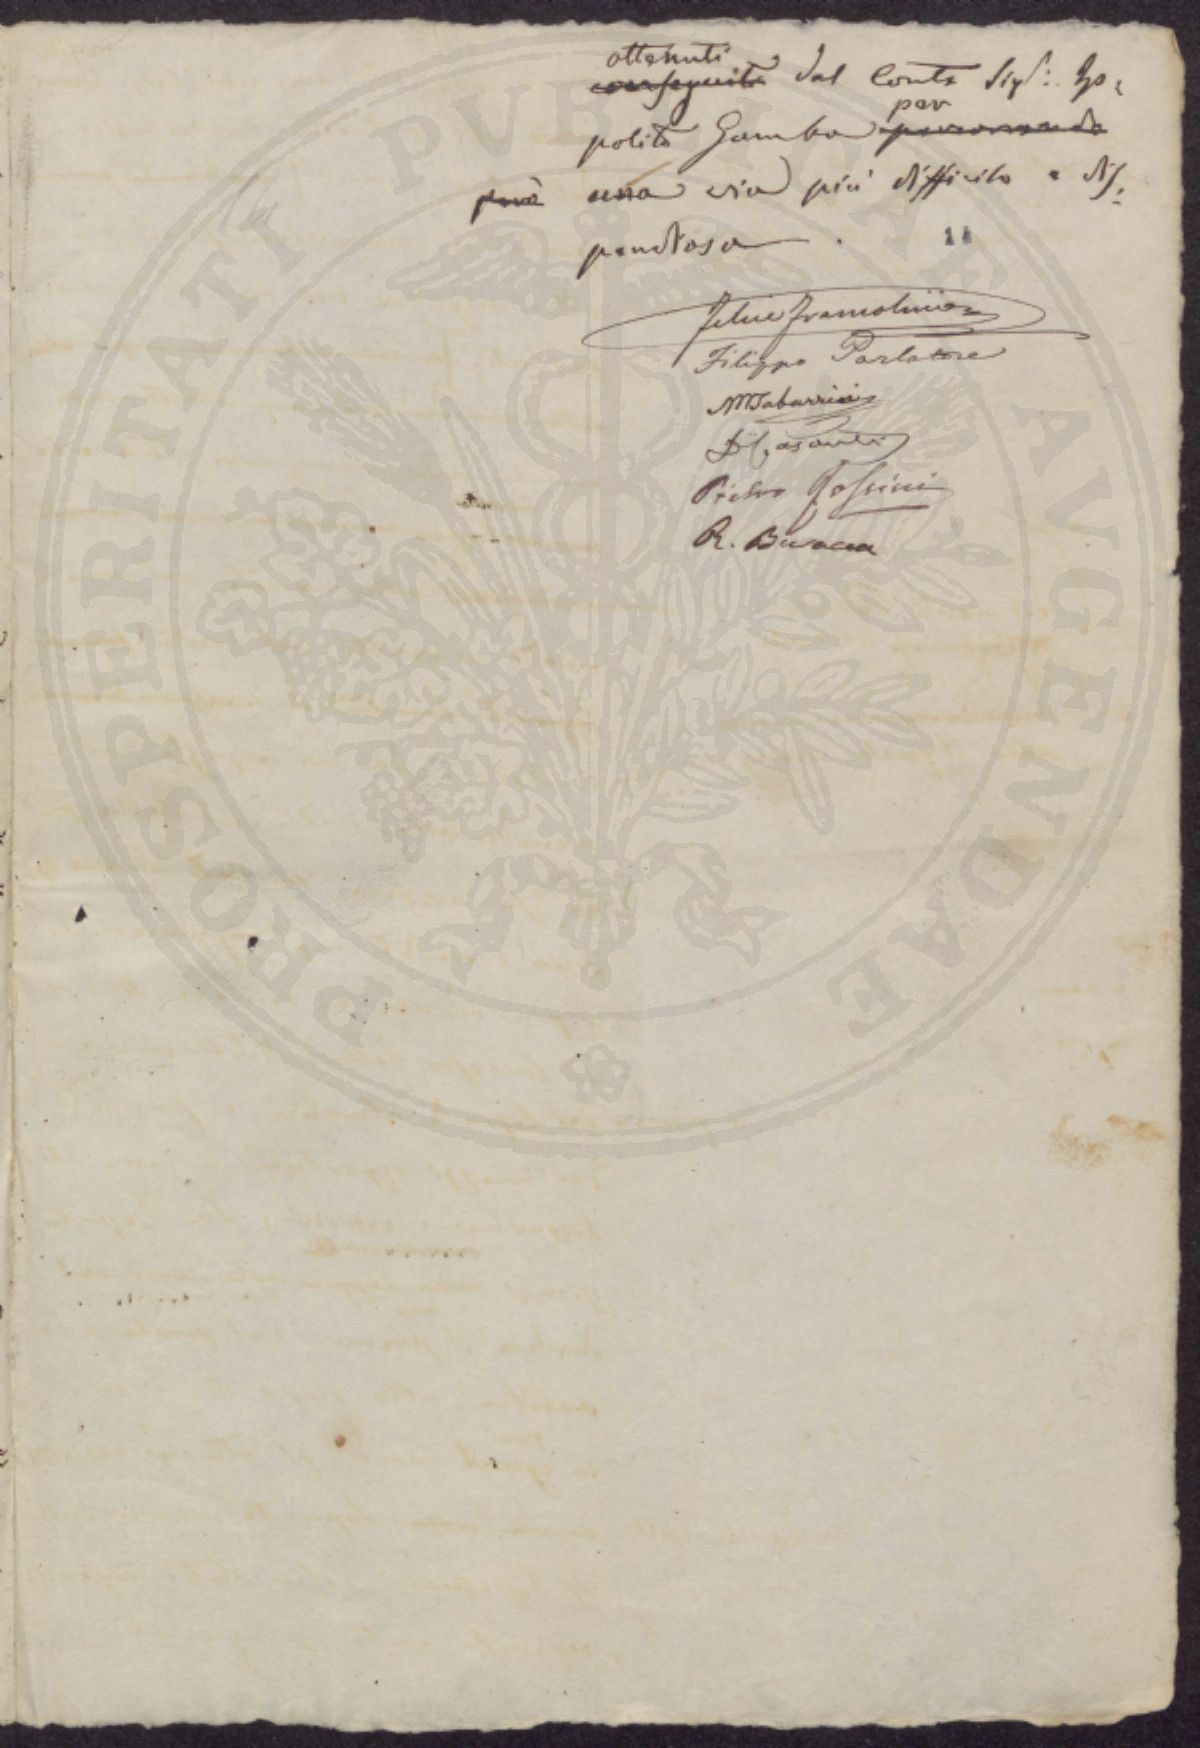 ottenuti
conseguiti dal Conte Sigr: Ip=
per
polito Gamba percorrendo
però una via più difficile e dis=
pendiosa.
Felice Francolini
Filippo Parlatore
MTabarrini
Pietro
R. Busacca
PROSPERITATI PVBLICAE AVGENDAE